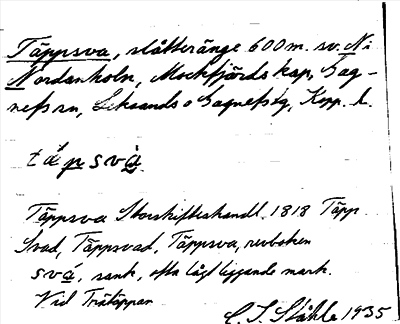 Täppsva, slåtteränge 600 m. sv. N:
Nordanholn, Mockfjärds kap, Gag-
nefs sn, Leksands o Gagnefs tg, Kopp. l.
täpsvà
Täppsva Storskifteshandl. 1818 Täpp
Svad, Täppsvad, Täppsva, revboken
svá, sank, ofta lågt liggande mark.
Vid Trätäppan
C. I. Ståhle 1935